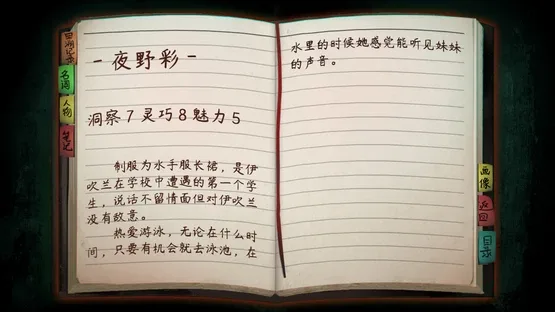 -夜野彩-
洞察7灵巧8魅力5
制服为水手服长裙，是伊
吹兰在学校中遭遇的第一个学
生，说话不留情面但对伊吹兰
没有敌意。
热爱游泳，无论在什么时
间，只要有机会就去泳池，在
水里的时候她感觉能听见妹妹
的声音。
名词
人物
笔记
画像
返回
目录